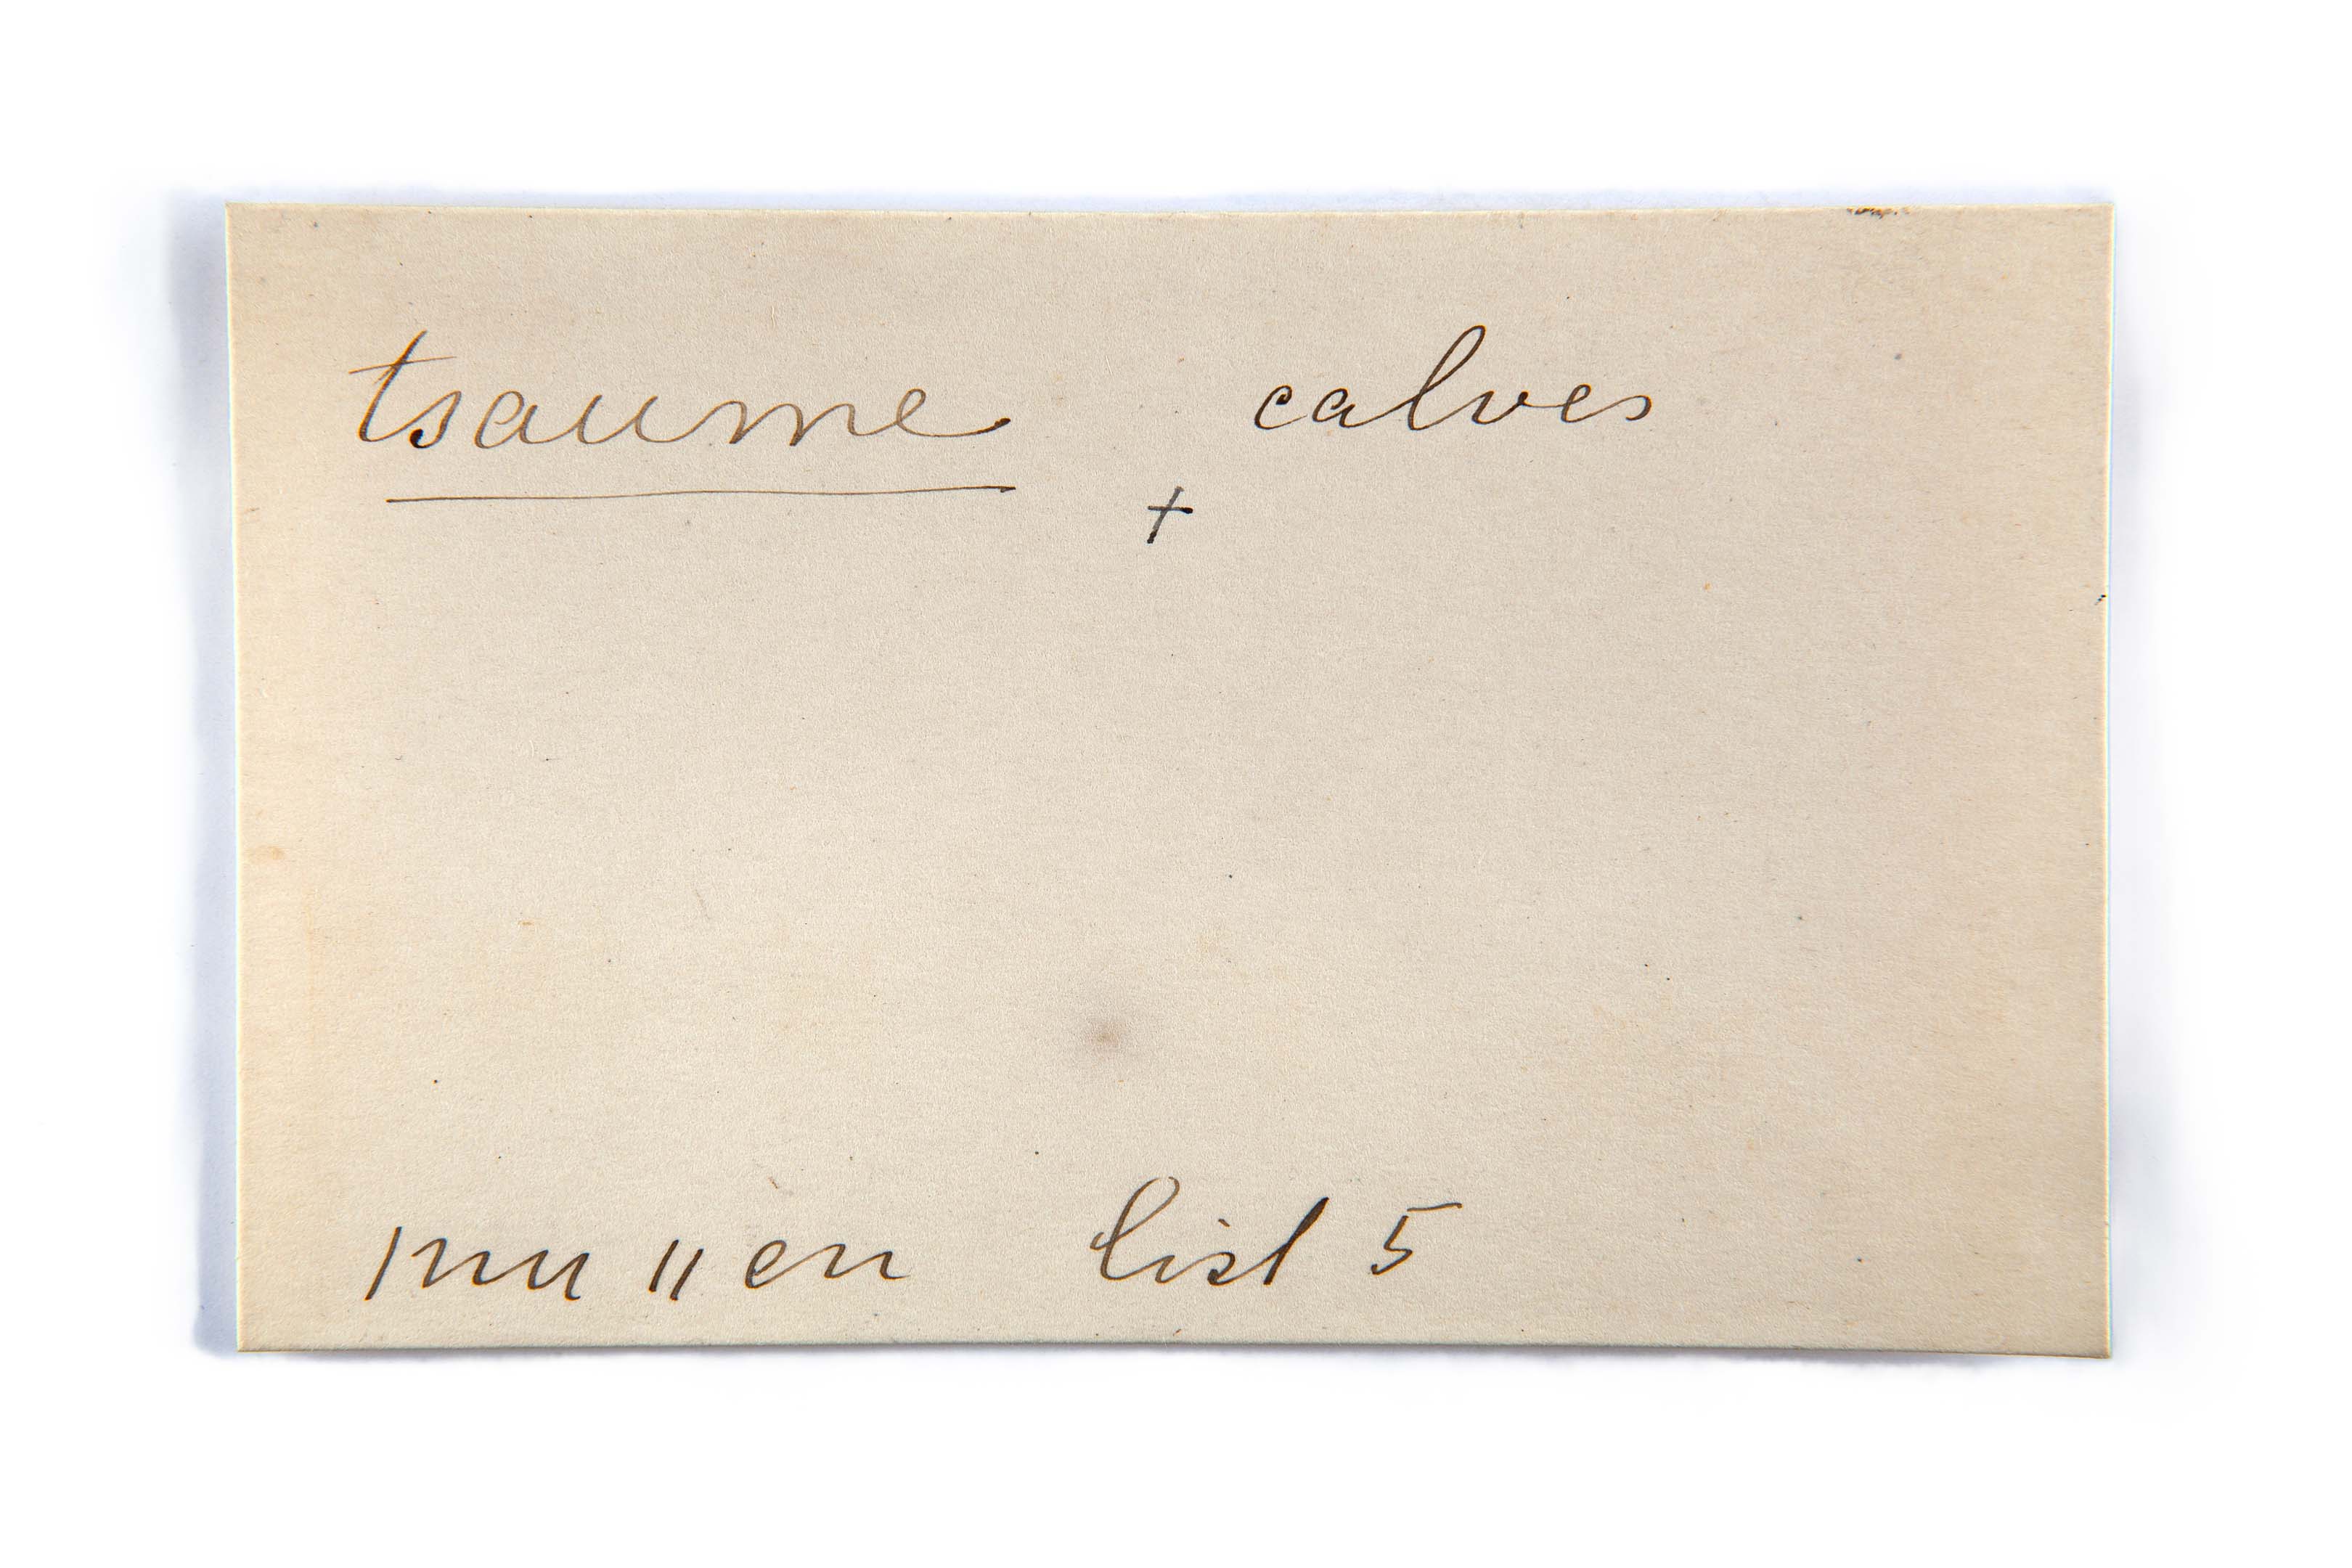 tsaume calves
+
|nu||en list 5